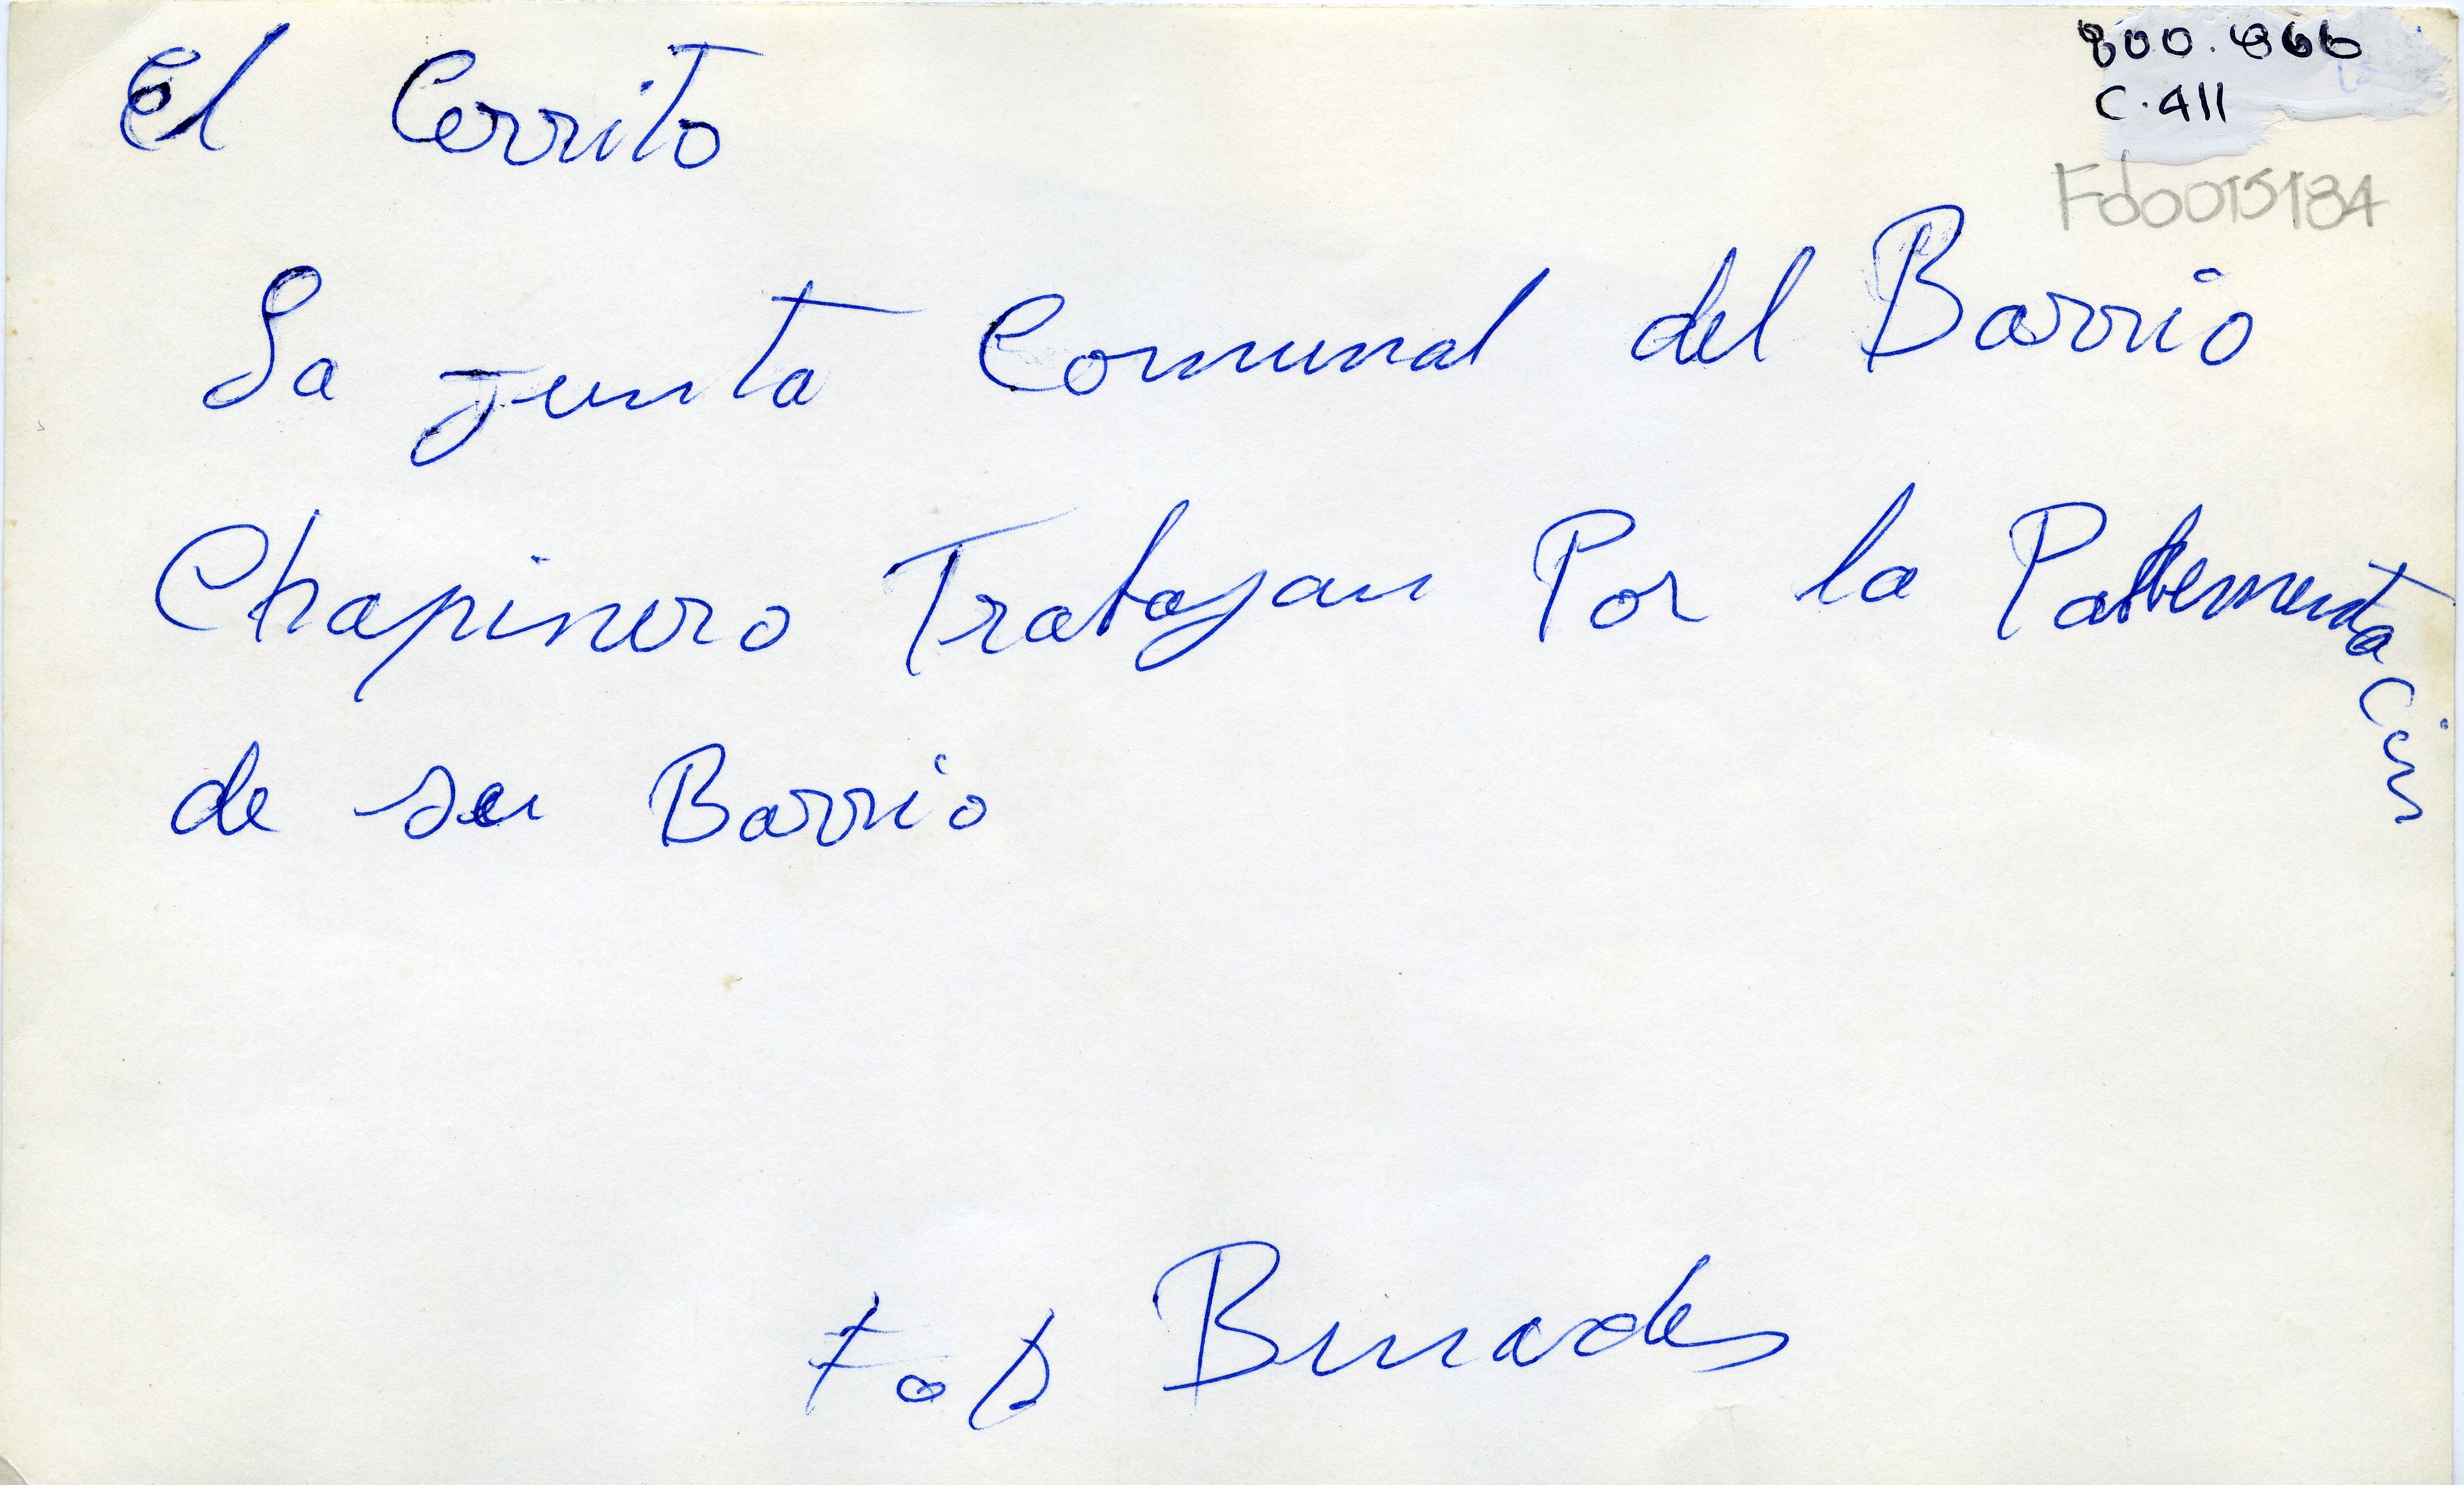 800.866
C.411
Fdo015184
El Cerrito
La junta Comunal del Barrio
Chapinero Trabajan Por la
de su Barrio
Foto